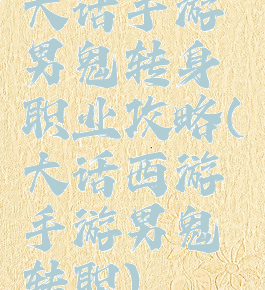 大话手游
男鬼转身
职业攻略(
大话西游
手游男鬼
转职)